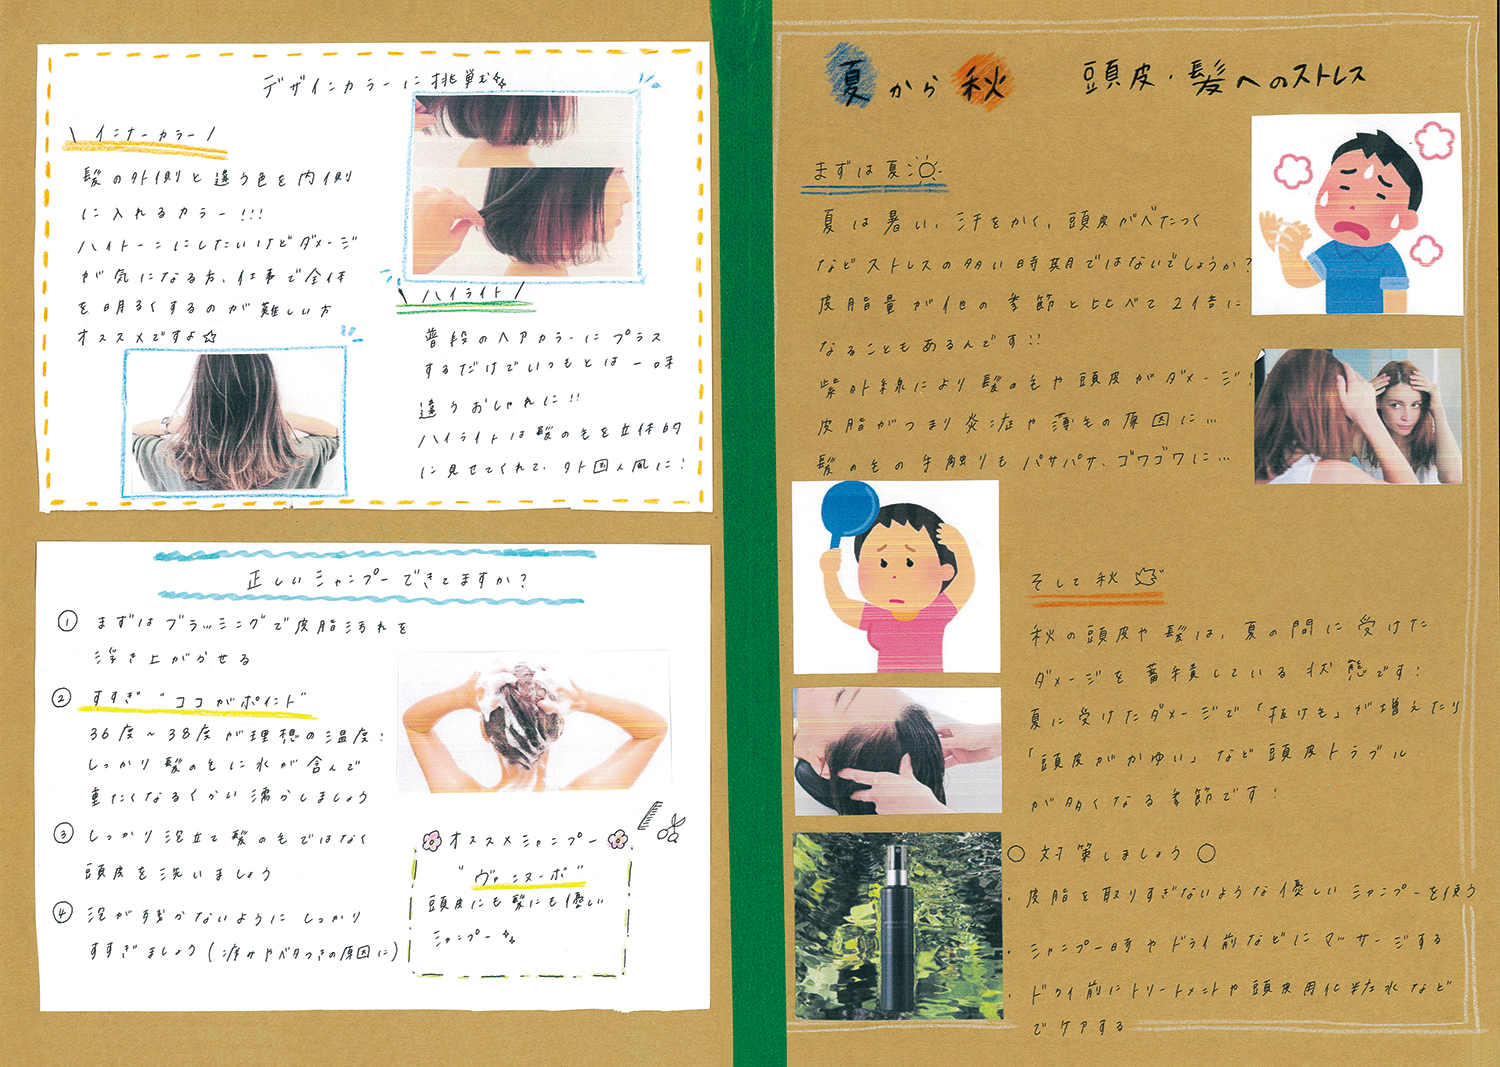 デザインカラーに挑戦む
\ インナーカラー /
髪の外側と違う色を内側
に入れるカラー!!!
ハイトーンにしたいけどダメージ
が気になる方、仕事で全体
を明るくするのが難しい方
オススメですよ☆
\ ハイライト /
普段のヘアカラーにプラス
するだけでいつもとは一味
違うおしゃれに!!
ハイライトは髪の毛を立体的
に見せてくれて、外国人風に!
正しいシャンプーできてますか?
① まずはブラッシングで皮脂汚れを
浮き上がらせる
② すすぎ "ココがポイント"
36度~38度が理想の温度!
しっかり髪の毛に水が含んで
重たくなるくらい濡らしましょう
③ しっかり泡立て髪の毛ではなく
頭皮を洗いましょう
④ 泡が残らないようにしっかり
すすぎましょう(痒みやベタつきの原因に)
オススメシャンプー
"ヴァンヌーボ"
頭皮にも髪にも優しい
シャンプー
夏から秋 頭皮・髪へのストレス
まずは夏
夏は暑い、汗をかく、頭皮がべたつく
などストレスの多い時期ではないでしょうか?
皮脂量が他の季節と比べて2倍に
なることもあるんです!!
紫外線により髪の毛や頭皮がダメージ!
皮脂がつまり炎症や薄毛の原因に…
髪の毛の手触りもパサパサ、ゴワゴワに…
そして秋
秋の頭皮や髪は、夏の間に受けた
ダメージを蓄積している状態です!
夏に受けたダメージで「抜け毛」が増えたり
「頭皮がかゆい」など頭皮トラブル
が多くなる季節です!
○ 対策しましょう ○
・皮脂を取りすぎないような優しいシャンプーを使う
・シャンプー時やドライ前などにマッサージする
・ドライ前にトリートメントや頭皮用化粧水など
でケアする